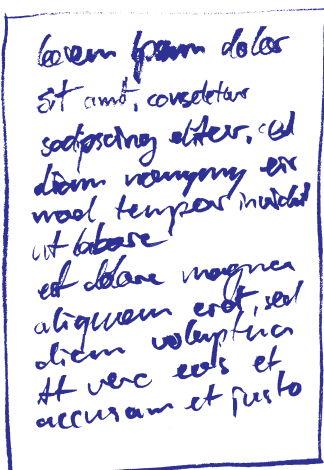 Lorem Ipsum dolor
sit amt, consetetur
sadipscing elitr, sed
diam nonymy eir
mod tempor invidut
ut labore
et dolore magna
aliquem erat, sed
diem voluptua
At vero eos et
accusam et justo